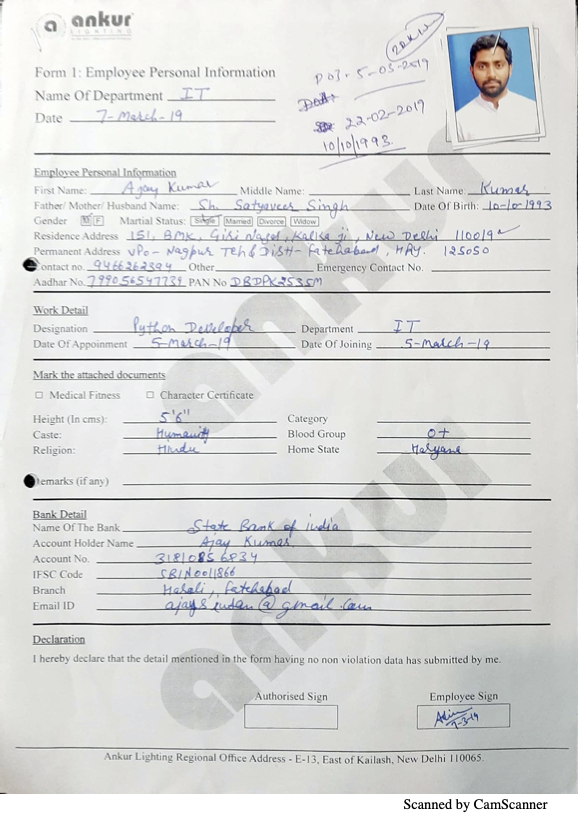 ankur
LIGHTING
Form 1: Employee Personal Information
Name Of Department IT
Date 7-March-19
DOJ. 5-03-2019
22-02-2019
10/10/1993
Employee Personal Information
First Name: Ajay Kumar Middle Name: Last Name Kumar
Father/ Mother/ Husband Name: Sh. Satyaveer Singh Date Of Birth: 10-10-1993
Gender M F Martial Status: Single Married Divorce Widow
Residence Address 151, BMK, Giri Nagar, Kalka ji, New Delhi 110019
Permanent Address VPO- Nagpur Teh & Distt- Fatehabad, HAY. 125050
Contact no. 9466262394 Other Emergency Contact No.
Aadhar No. 799056547739 PAN No DBDPK2535M
Work Detail
Designation Python Developer Department IT
Date Of Appoinment 5-March-19 Date Of Joining 5-March-19
Mark the attached documents
☐ Medical Fitness ☐ Character Certificate
Height (In cms): 5'6" Category
Caste: Humanity Blood Group O+
Religion: Hindu Home State Haryana
Remarks (if any)
Bank Detail
Name Of The Bank State Bank of India
Account Holder Name Ajay Kumar
Account No. 31810856834
IFSC Code SBIN0011866
Branch Fatehabad
Email ID @gmail.com
Declaration
I hereby declare that the detail mentioned in the form having no non violation data has submitted by me.
Authorised Sign Employee Sign
7-3-19
Ankur Lighting Regional Office Address - E-13, East of Kailash, New Delhi 110065.
Scanned by CamScanner